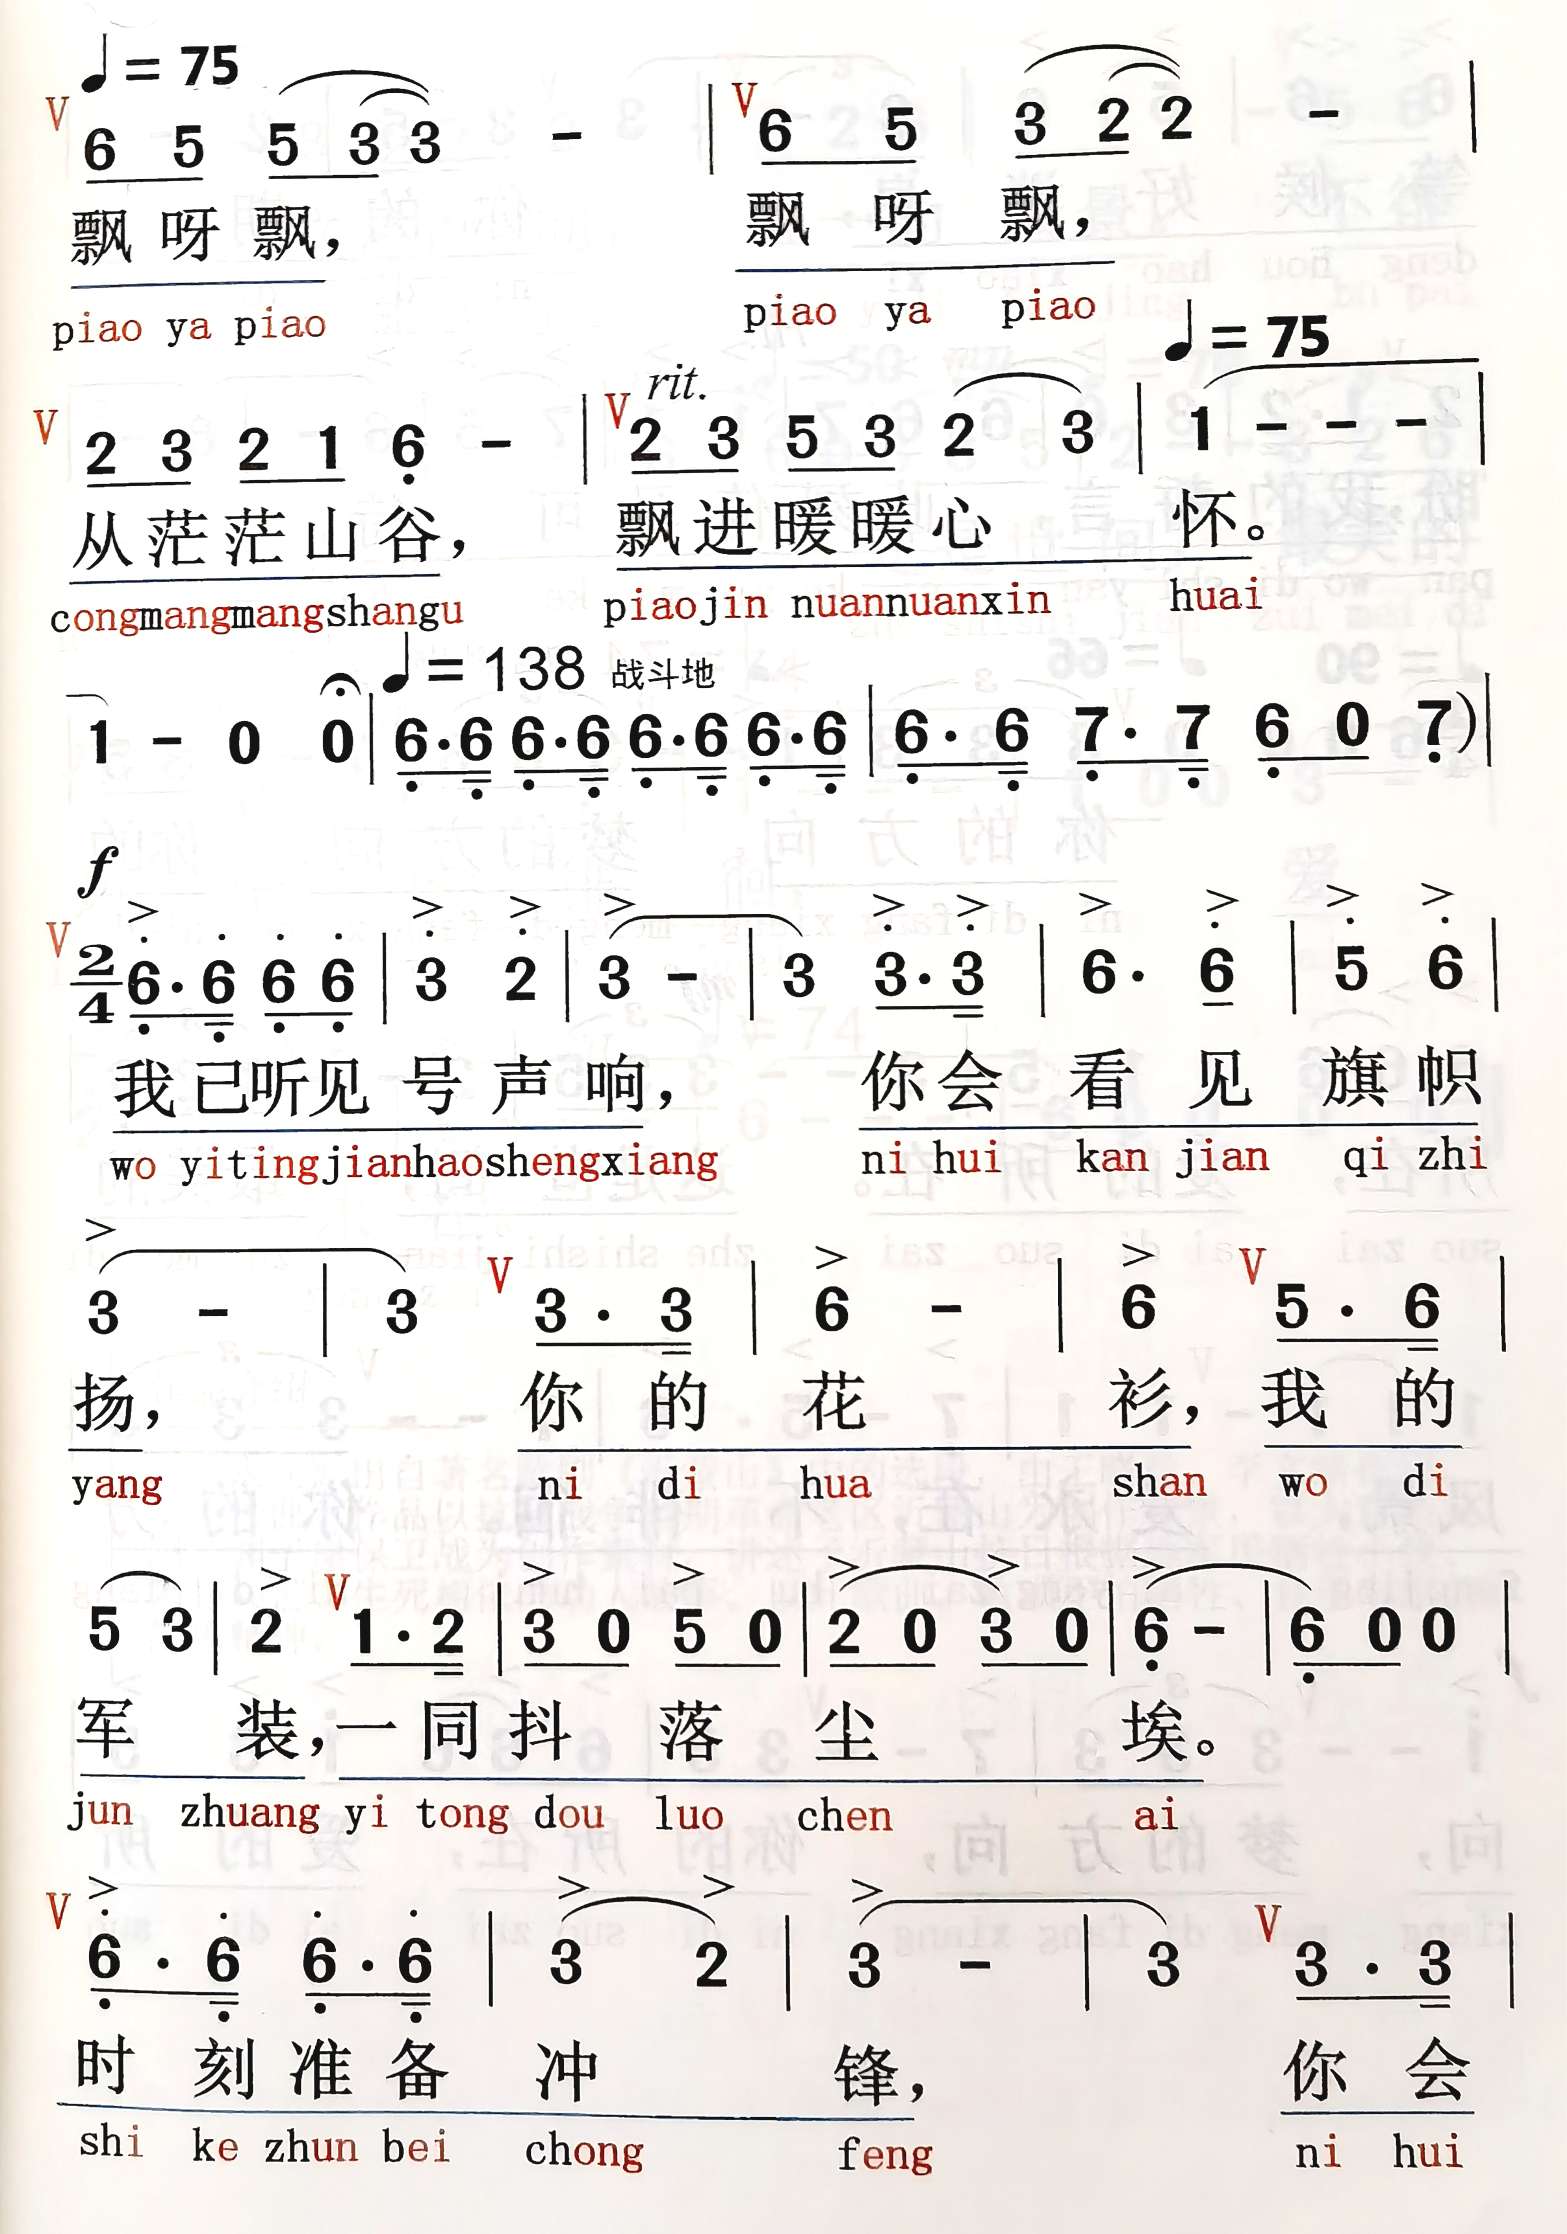 ♩= 75
V 6 5 5 3 3 - | V 6 5 3 2 2 - |
飘 呀 飘， 飘 呀 飘，
piao ya piao piao ya piao
rit. ♩= 75
V 2 3 2 1 6 - | V 2 3 5 3 2 3 | 1 - - - |
从 茫 茫 山 谷， 飘 进 暖 暖 心 怀。
congmangmangshangu piaojin nuannuanxin huai
♩= 138 战斗地
1 - 0 0 | 6·6 6·6 6·6 6·6 | 6·6 7·7 6 0 7) |
f
V 2/4 6·6 6 6 | 3 2 | 3 - | 3 3·3 | 6· 6 | 5 6 |
我 已 听 见 号 声 响， 你 会 看 见 旗 帜
wo yitingjianhaoshengxiang ni hui kan jian qi zhi
3 - | 3 V 3·3 | 6 - | 6 V 5·6 |
扬， 你 的 花 衫， 我 的
yang ni di hua shan wo di
5 3 | 2 V 1·2 | 3 0 5 0 | 2 0 3 0 | 6 - | 6 0 0 |
军 装， 一 同 抖 落 尘 埃。
jun zhuang yi tong dou luo chen ai
V 6·6 6·6 | 3 2 | 3 - | 3 V 3·3 |
时 刻 准 备 冲 锋， 你 会
shi ke zhun bei chong feng ni hui